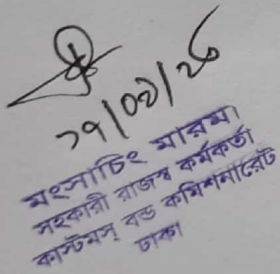 ২৭/০৩/২৪
মংসাচিং মারমা
সহকারী রাজস্ব কর্মকর্তা
কাস্টমস্ বন্ড কমিশনারেট
ঢাকা